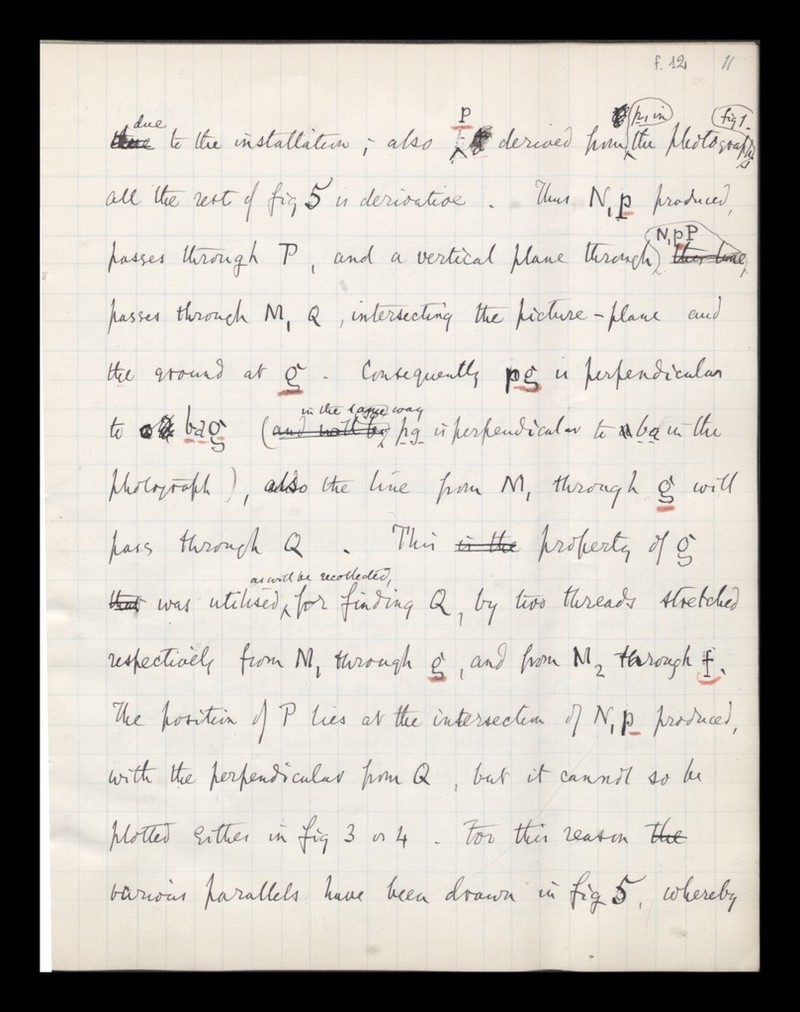 f. 12 11
due to the installation; also p derived from p, in the photograph fig 1.
all the rest of fig 5 is derivative. Thus N, p produced,
passes through P, and a vertical plane through N, p P
passes through M, Q, intersecting the picture-plane and
the ground at g. Consequently pg is perpendicular
to bag (and will be in the same way pg is perpendicular to ba in the
photograph), also the line from M, through g will
pass through Q. This is the property of g
that was utilised, as will be recollected, for finding Q, by two threads stretched
respectively from M, through g, and from M2 through f.
The position of P lies at the intersection of N, p produced,
with the perpendicular from Q, but it cannot so be
plotted either in fig 3 or 4. For this reason the
various parallels have been drawn in fig 5, whereby